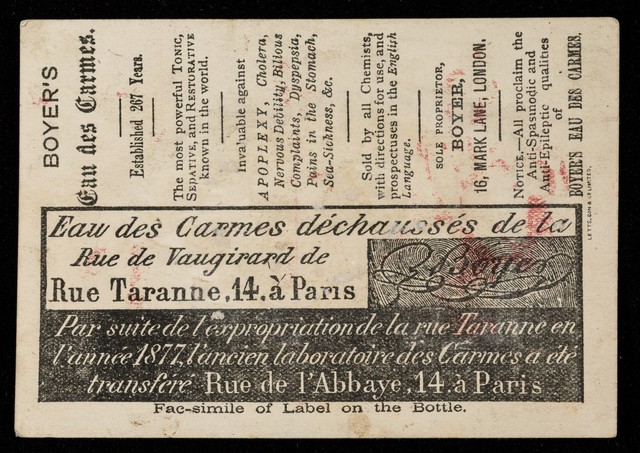 BOYER'S
Eau des Carmes.
Established 267 Years.
The most powerful TONIC,
SEDATIVE, and RESTORATIVE
known in the world.
Invaluable against
APOPLEXY, Cholera,
Nervous Debility, Bilious
Complaints, Dyspepsia,
Pains in the Stomach,
Sea-Sickness, &c.
Sold by all Chemists,
with directions for use, and
prospectuses in the English
Language.
SOLE PROPRIETOR,
BOYER,
16, MARK LANE, LONDON.
NOTICE.—All proclaim the
Anti-Spasmodic and
Anti-Epileptic qualities
of
BOYER'S EAU DES CARMES.
LETTS, SON & CO. LIMITED.
Eau des Carmes déchaussés de la
Rue de Vaugirard de
Rue Taranne, 14. à Paris
Boyer
Par suite de l'expropriation de la rue Taranne en
l'année 1877, l'ancien laboratoire des Carmes a été
transféré Rue de l'Abbaye, 14. à Paris
Fac-simile of Label on the Bottle.